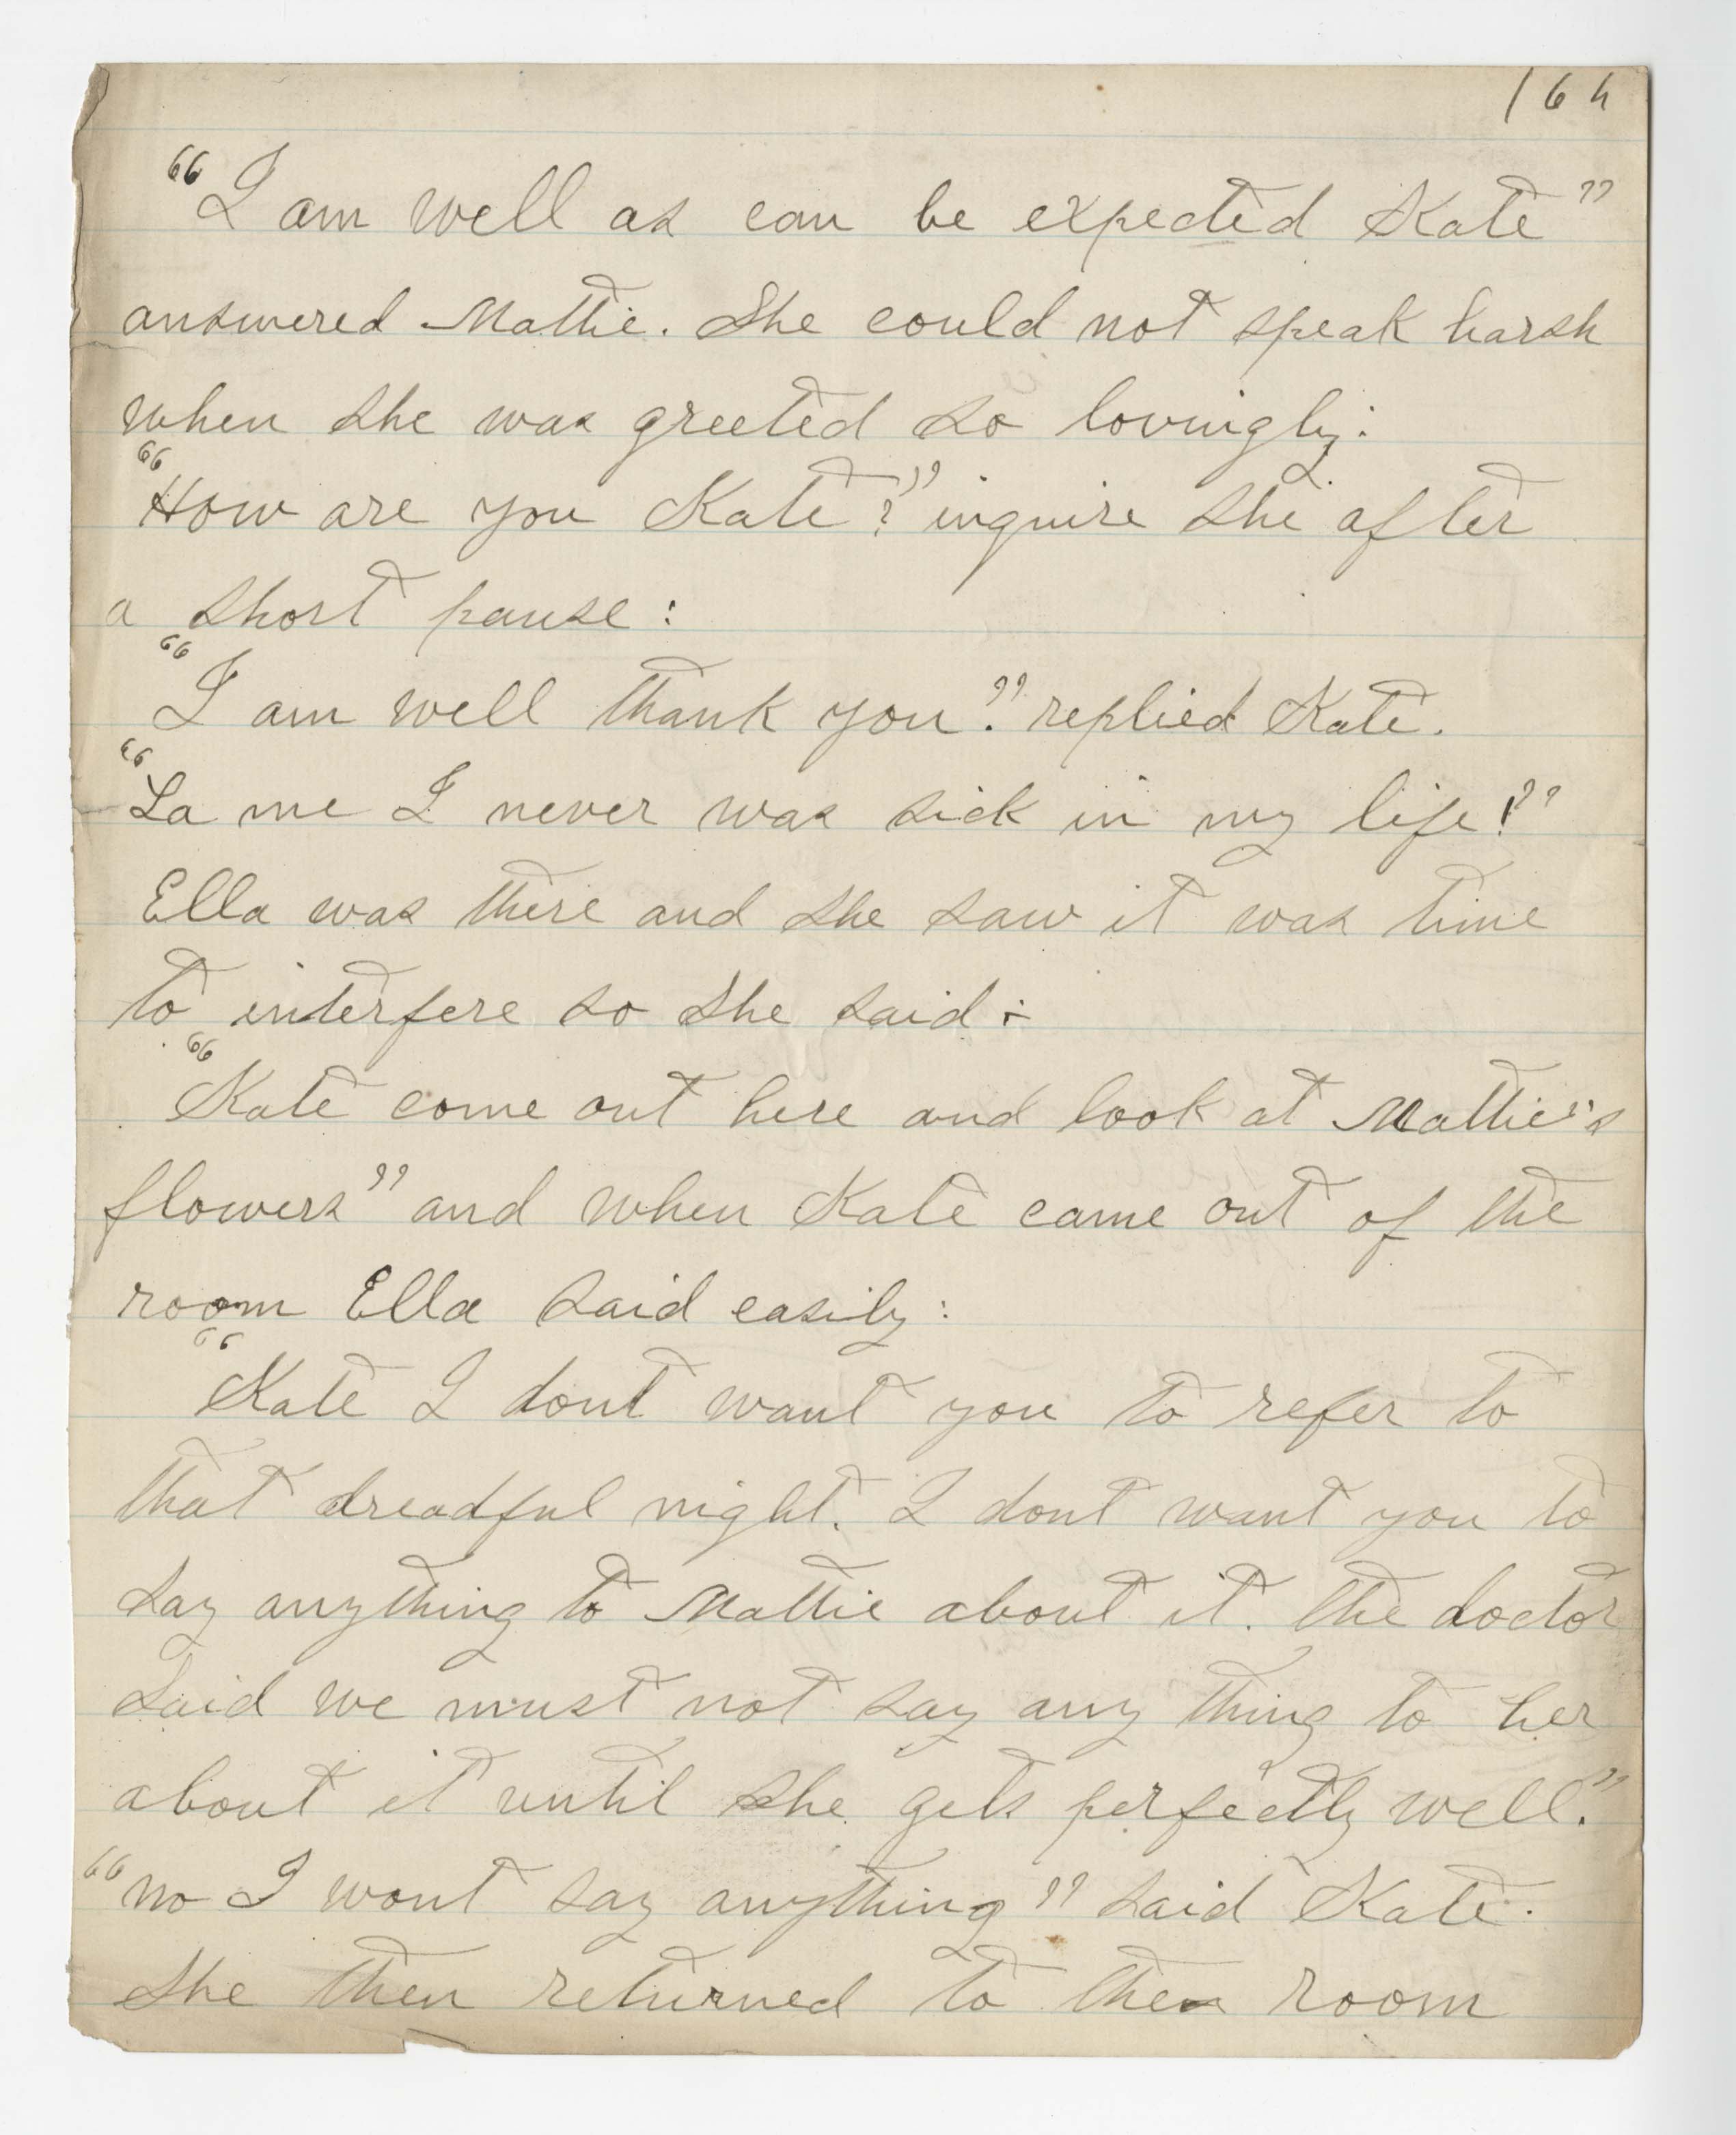 164
"I am well as can be expected Kate"
answered Mattie. She could not speak harsh
when she was greeted so lovingly:
"How are you Kate?" inquire she after
a short pause:
"I am well thank you." replied Kate.
"La me I never was sick in my life!"
Ella was there and she saw it was time
to interfere so she said:
"Kate come out here and look at Mattie's
flowers" and when Kate came out of the
room Ella said easily:
"Kate I dont want you to refer to
that dreadful night. I dont want you to
say anything to Mattie about it. the doctor
said we must not say any thing to her
about it until she gets perfectly well."
"no I wont say anything" said Kate.
she then returned to the room